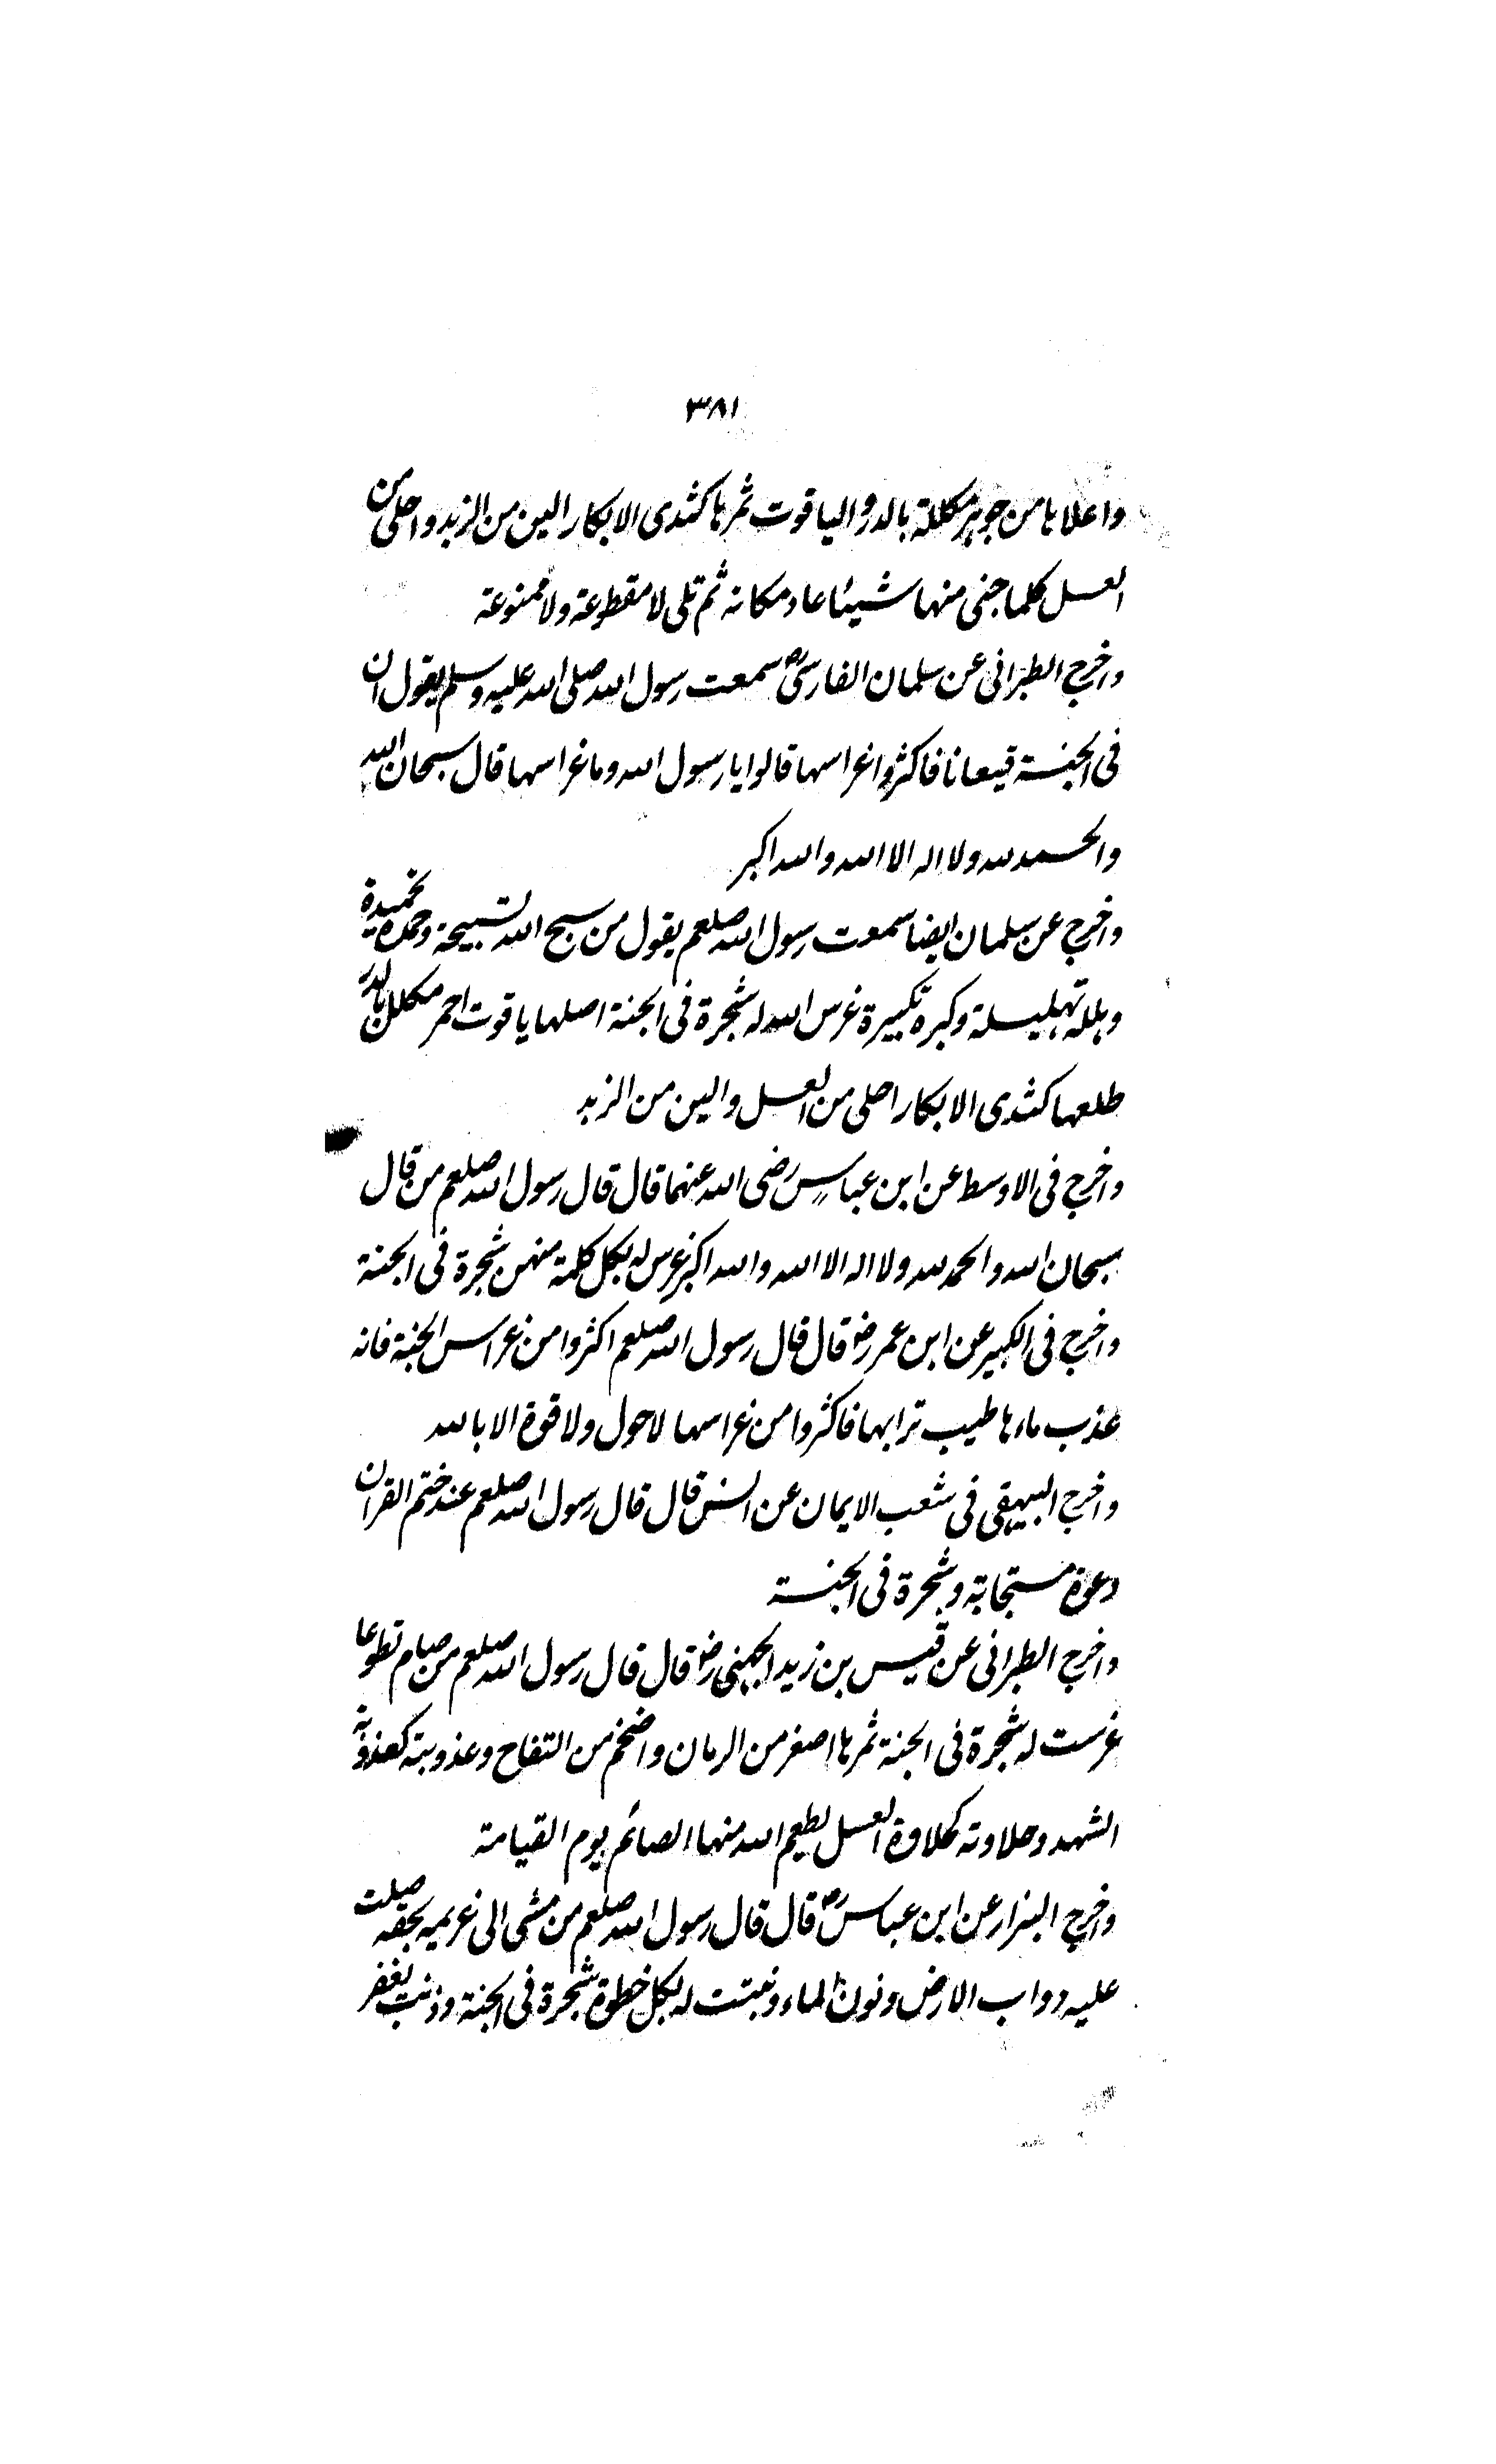 ٣٨١
واعلاها من جوهر مكللة بالدر والياقوت ثمرها كثدى الابكار الين من الزبد واحلى من
العسل كلما جنى منها شيئا عاد مكانه ثم تلى لا مقطوعة ولا ممنوعة
واخرج الطبرانى عن سلمان الفارسى رض سمعت رسول الله صلى الله عليه وسلم يقول ان
فى الجنة قيعانا فاكثروا غراسها قالوا يا رسول الله وما غراسها قال سبحان الله
والحمد لله ولا اله الا الله والله اكبر
واخرج عن سلمان ايضا سمعت رسول الله صلعم يقول من سبح الله تسبيحة وحمده تحميدة
وهلله تهليلة وكبره تكبيرة غرس الله له شجرة فى الجنة اصلها ياقوت احمر مكلل بالدر
طلعها كثدى الابكار احلى من العسل والين من الزبد
واخرج فى الاوسط عن ابن عباس رضى الله عنهما قال قال رسول الله صلعم من قال
سبحان الله والحمد لله ولا اله الا الله والله اكبر غرس له بكل كلمة منهن شجرة فى الجنة
واخرج فى الكبير عن ابن عمر رض قال قال رسول الله صلعم اكثروا من غراس الجنة فانه
عذب ماءها طيب ترابها فاكثروا من غراسها لا حول ولا قوة الا بالله
واخرج البيهقى فى شعب الايمان عن انس قال قال رسول الله صلعم عند ختم القرآن
دعوة مستجابة وشجرة فى الجنة
واخرج الطبرانى عن قيس بن زيد الجهنى رض قال قال رسول الله صلعم من صام تطوعا
غرست له شجرة فى الجنة ثمرها اصغر من الرمان واضخم من التفاح وعذوبته كعذوبة
الشهد وحلاوته كحلاوة العسل يطعم الله منها الصائم يوم القيامة
واخرج البزار عن ابن عباس رض قال قال رسول الله صلعم من مشى الى غريمه بحقه صلت
عليه دواب الارض ونون الماء ونبتت له بكل خطوة شجرة فى الجنة وذنب يغفر